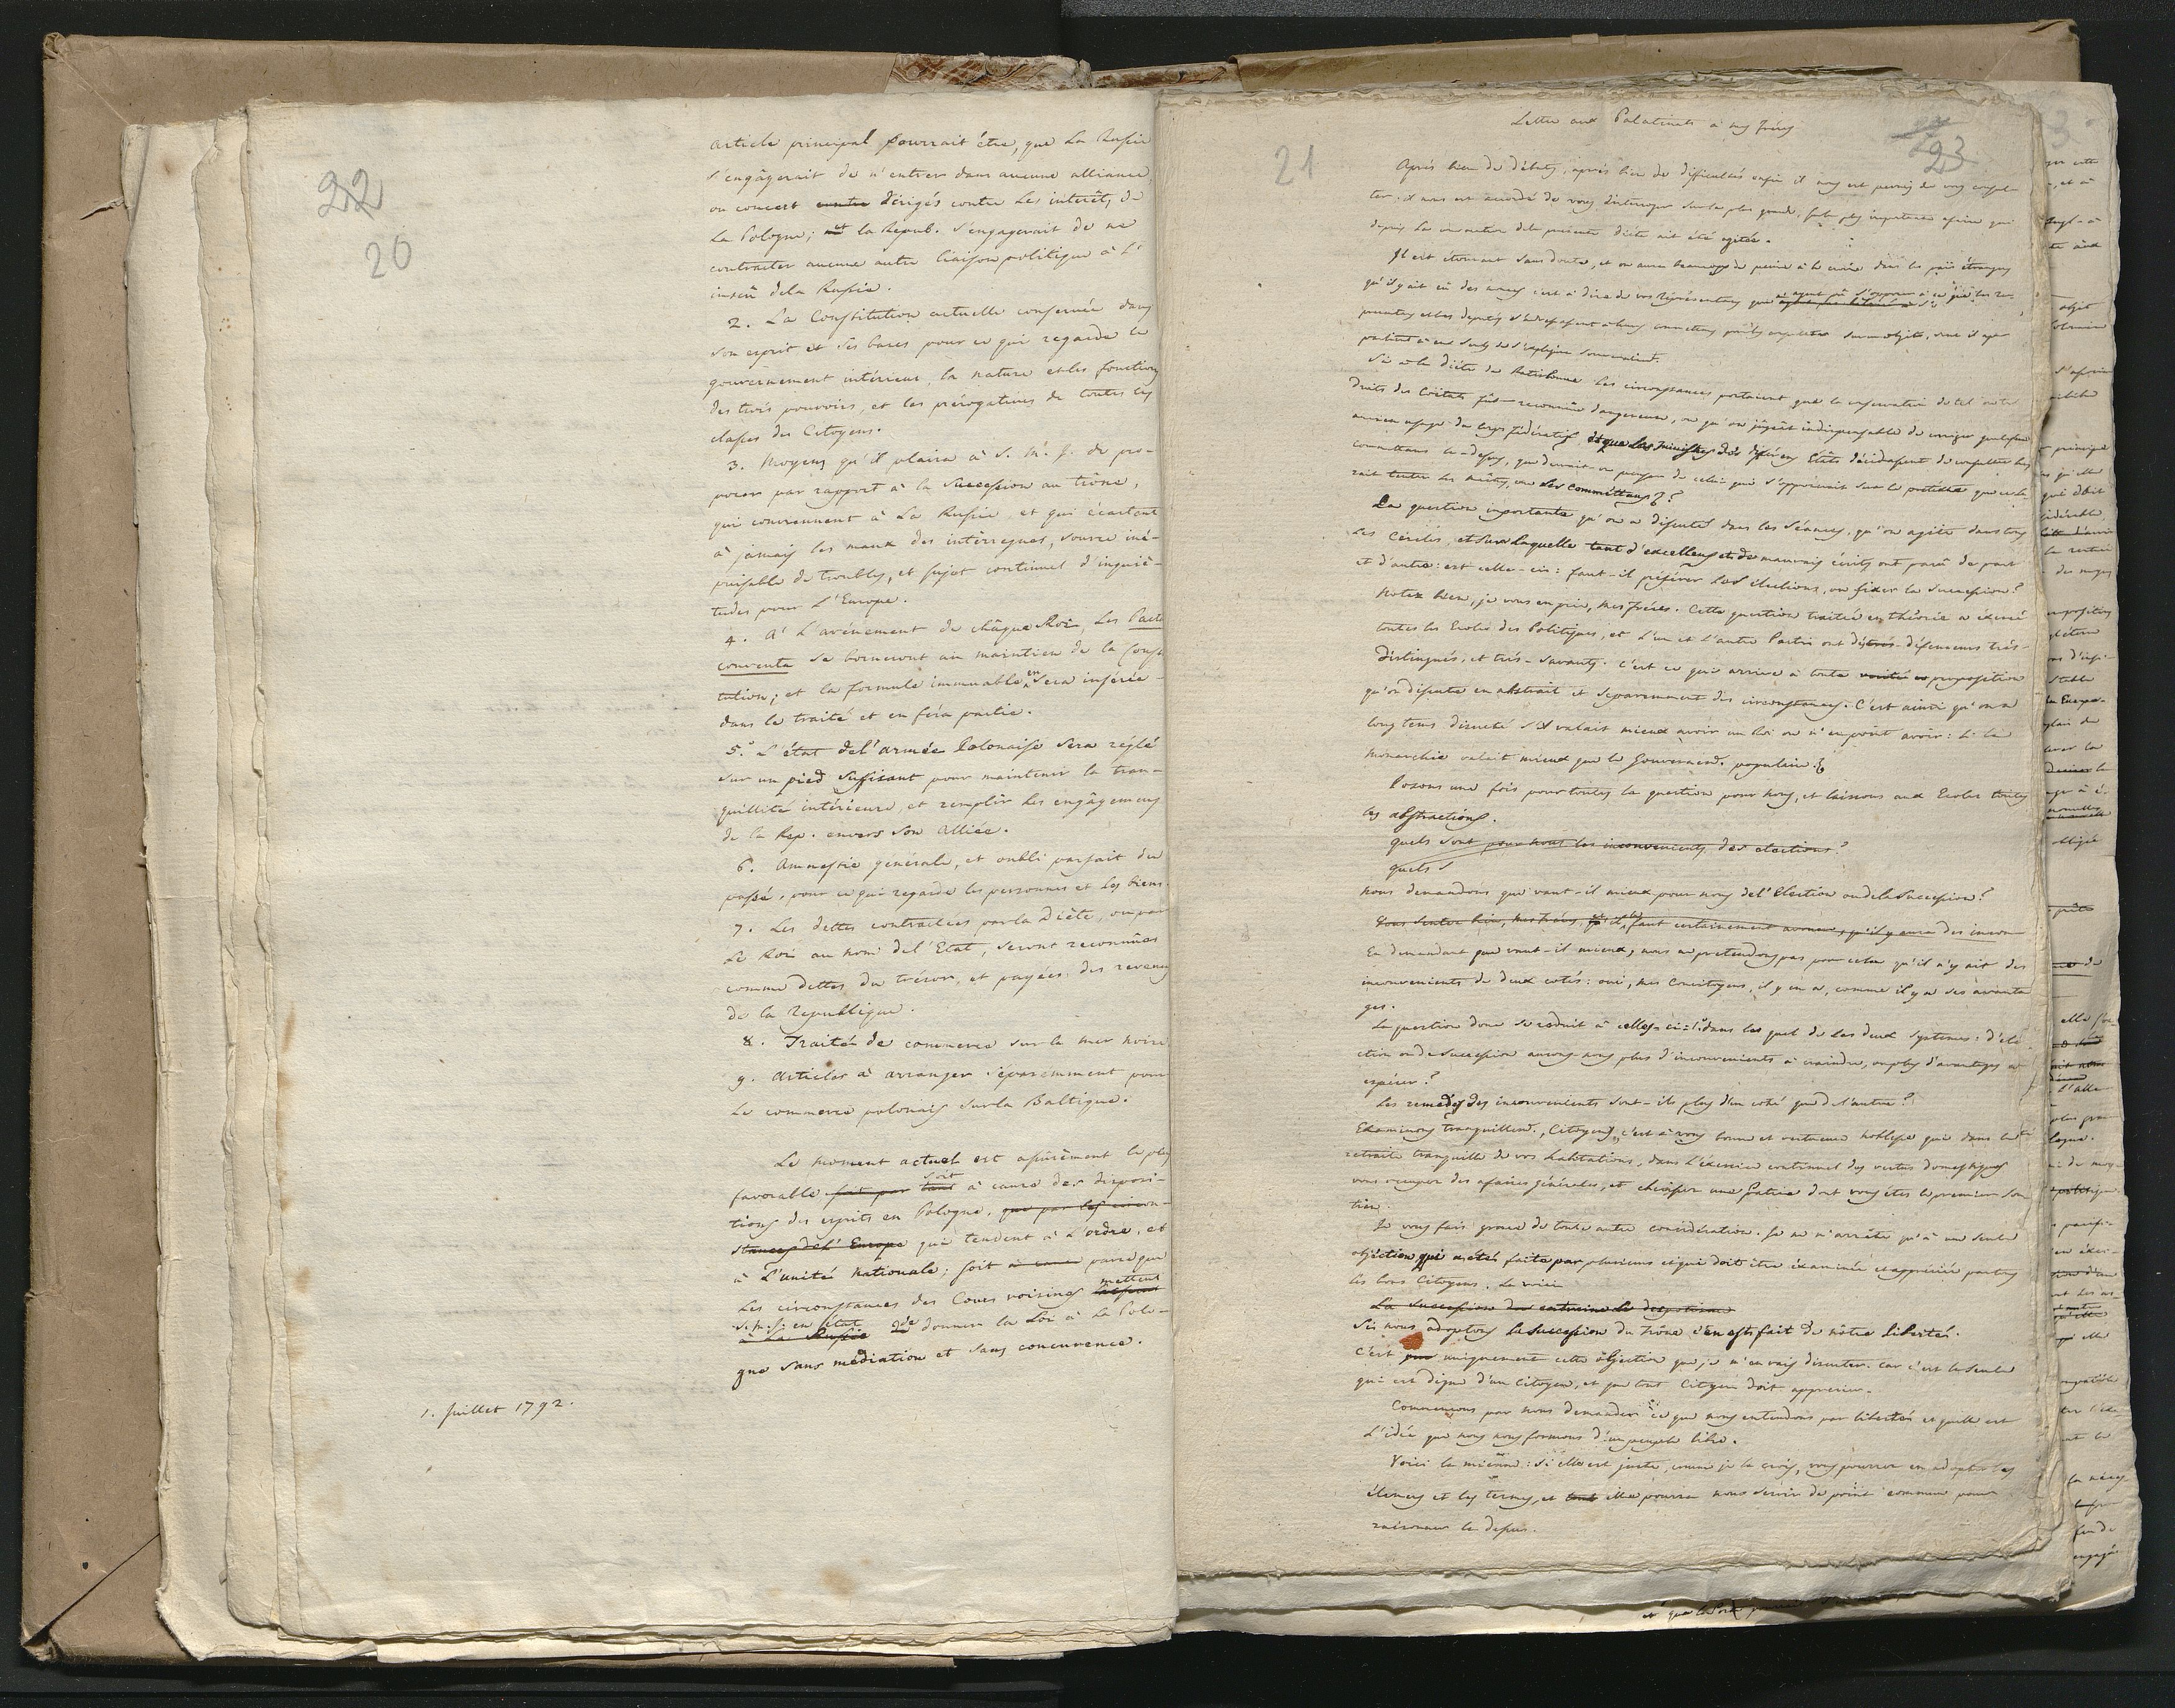 22
20
article principal pourrait être, que La Russie
s'engâgerait de n'entrer dans aucune alliance,
ou concert contre dirigés contre Les interêts de
La Pologne; et la Repub. s'engagerait de ne
contracter aucune autre liaison politique à l'
insçû dela Russie.
2. La Constitution actuelle conservée dans
son esprit et ses bases pour ce qui regarde le
gouvernement intérieur, la nature et les fonctions
des trois pouvoirs, et les prérogatives de toutes les
classes des Citoyens.
3. Moyens qu'il plaira à S. M. J. de pro-
poser par rapport à la Succession au trône,
qui conviennent à La Russie, et qui écartent
à jamais les maux des intèrregnes, source iné-
puisable de troubles, et sujet continuel d'inquié-
tudes pour L'Europe.
4. A' L'avénement de châque Roi, Les Pacta
conventa se borneront au maintien de la Consti
tution; et la formule immuable en sera insérée
dans le traité et en fera partie.
5.° L'état del'armée Polonaise sera réglé
sur un pied suffisant pour maintenir la tran-
quillité intérieure, et remplir Les engâgemens
de la Rep. envers son Alliée.
6. Amnestie générale, et oubli parfait du
passé, pour ce qui regarde les personnes et Les biens.
7. Les dettes contractées par la Diète, ou par
Le Roi au nom del'Etat, seront reconnües
comme dettes du trésor, et payées des revenus
de la Republique.
8. Traité de commerce sur la mer noire
9. Articles à arranger séparemment pour
Le commerce polonais sur la Baltique.
Le moment actuel est assûrément le plus
favorable soit par tant soit à cause des disposi-
tions des esprits en Pologne, que par les circon-
stances del'Europe qui tendent à L'ordre, et
à L'unité nationale; soit à cause parceque
Les circonstances des Cours voisines mettent
S. M. J. en état à La Russie de donner la Loi à La Polo-
gne sans médiation et sans concurrence.
1. Juillet 1792.
21
23
Lettre aux Palatinats à mes frères
Après bien de débats, après bien de difficultés enfin il nous est permis de vous consul-
ter. il nous est accordé de vous interroger sur la plus grande, sur la plus importante affaire qui
depuis La formation dela presente diète ait été agitée.
Il est étonnant sans doute, et on aura beaucoup de peine à le croire dans les païs étrangers
qu'il y ait eû des nonces c'est à dire de vos représentans qui ayent pû s'opposer à ce que les re-
presentans et les deputés s'adressassent à leurs commettans pour les consulter sur un objet, sur le quel il ap-
partient à eux seuls de s'expliquer souverainement.
Si à la diète de Ratisbonne Les circonstances portaient que la conservation de tel ou tel
droits des Coëtats fût reconnüe dangereuse, ou qu'on jugeât indispensable de corriger quelque
ancien usage du corps fédératif, et que les Ministres des differens Etats décidassent de consulter Les
commettans la-dessus, que devrait-on penser de celui qui s'opposerait sous le prétexte que ce se-
rait tenter Les maîtres, ou Les Committans?
La question importante qu'on a discuté dans les Séances, qu'on agite dans tous
Les Cercles, et sur laquelle tant d'excellens et de mauvais écrits ont parû de part
et d'autre: est celle-ci: faut-il préférer Les élections, ou fixer la Succession?
Notez bien, je vous en prie, Mes frères. Cette question traitée en théorie a exercé
toutes les Ecoles des Politiques, et L'un et L'autre Parti ont des très défenseurs très-
distingués, et très-savants. C'est ce qui arrive à toute vérité et proposition
qu'on discute en abstrait et séparemment des circonstances. C'est ainsi qu'on a
long tems discuté s'il valait mieux avoir un Roi ou n'en point avoir: si la
Monarchie valait mieux que le Gouvernem. populaire &
Posons une fois pour toutes la question pour nous, et laissons aux Ecoles toutes
les abstractions.
quels sont pour nous les inconvenients des elections?
quels s
Nous demandons que vaut-il mieux pour nous del'Election ou dela Succession?
Vous sentez bien, mes frères, qu'il faut certainement avouer, qu'il y aura des incon-
En demandant que vaut-il mieux, nous ne pretendons pas pour cela qu'il n'y ait des
inconvenients de deux cotés: oui, mes Concitoyens, il y en a, comme il y a des avanta
ges.
La question donc se reduit à celles-ci: 1° dans les quel de Les deux systemes: d'élé-
ction ou de Succession aurons nous plus d'inconvenients à craindre, ou plus d'avantages à
espérer?
Les remèdes des inconvenients sont-ils plus d'un coté que de l'autre?
Examinons tranquillem., Citoyens, c'est à vous bonne et vertueuse noblesse qui dans la
retraite tranquille de vos habitations, dans L'éxercice continuel des vertus domestiques
vous occuper des afaires générales, et cherisser une Patrie dont vous étes le premier sou
tien.
Je vous fais grace de toute autre considération. Je ne m'arrête qu'à une seule
objection qui a été faite par plusieurs et qui doit être examinée et appréciée par tous
les bons Citoyens. La voici
La Succession doit entrainer le despotisme
Si nous adoptons la Succession du trône c'en est fait de nôtre liberté.
C'est que uniquement cette objection que je m'en vais discuter. car c'est la seule
qui est digne d'un Citoyen, et que tout Citoyen doit apprecier.
Commençons par nous demander ce que nous entendons par liberté, et quelle est
L'idée que nous nous formons d'un peuple libre.
Voici la mienne: si elle est juste, comme je le crois, vous pourrez en adopter les
élemens et les termes, et tout elle pourra nous servir de point commun pour
raisonner là dessus.